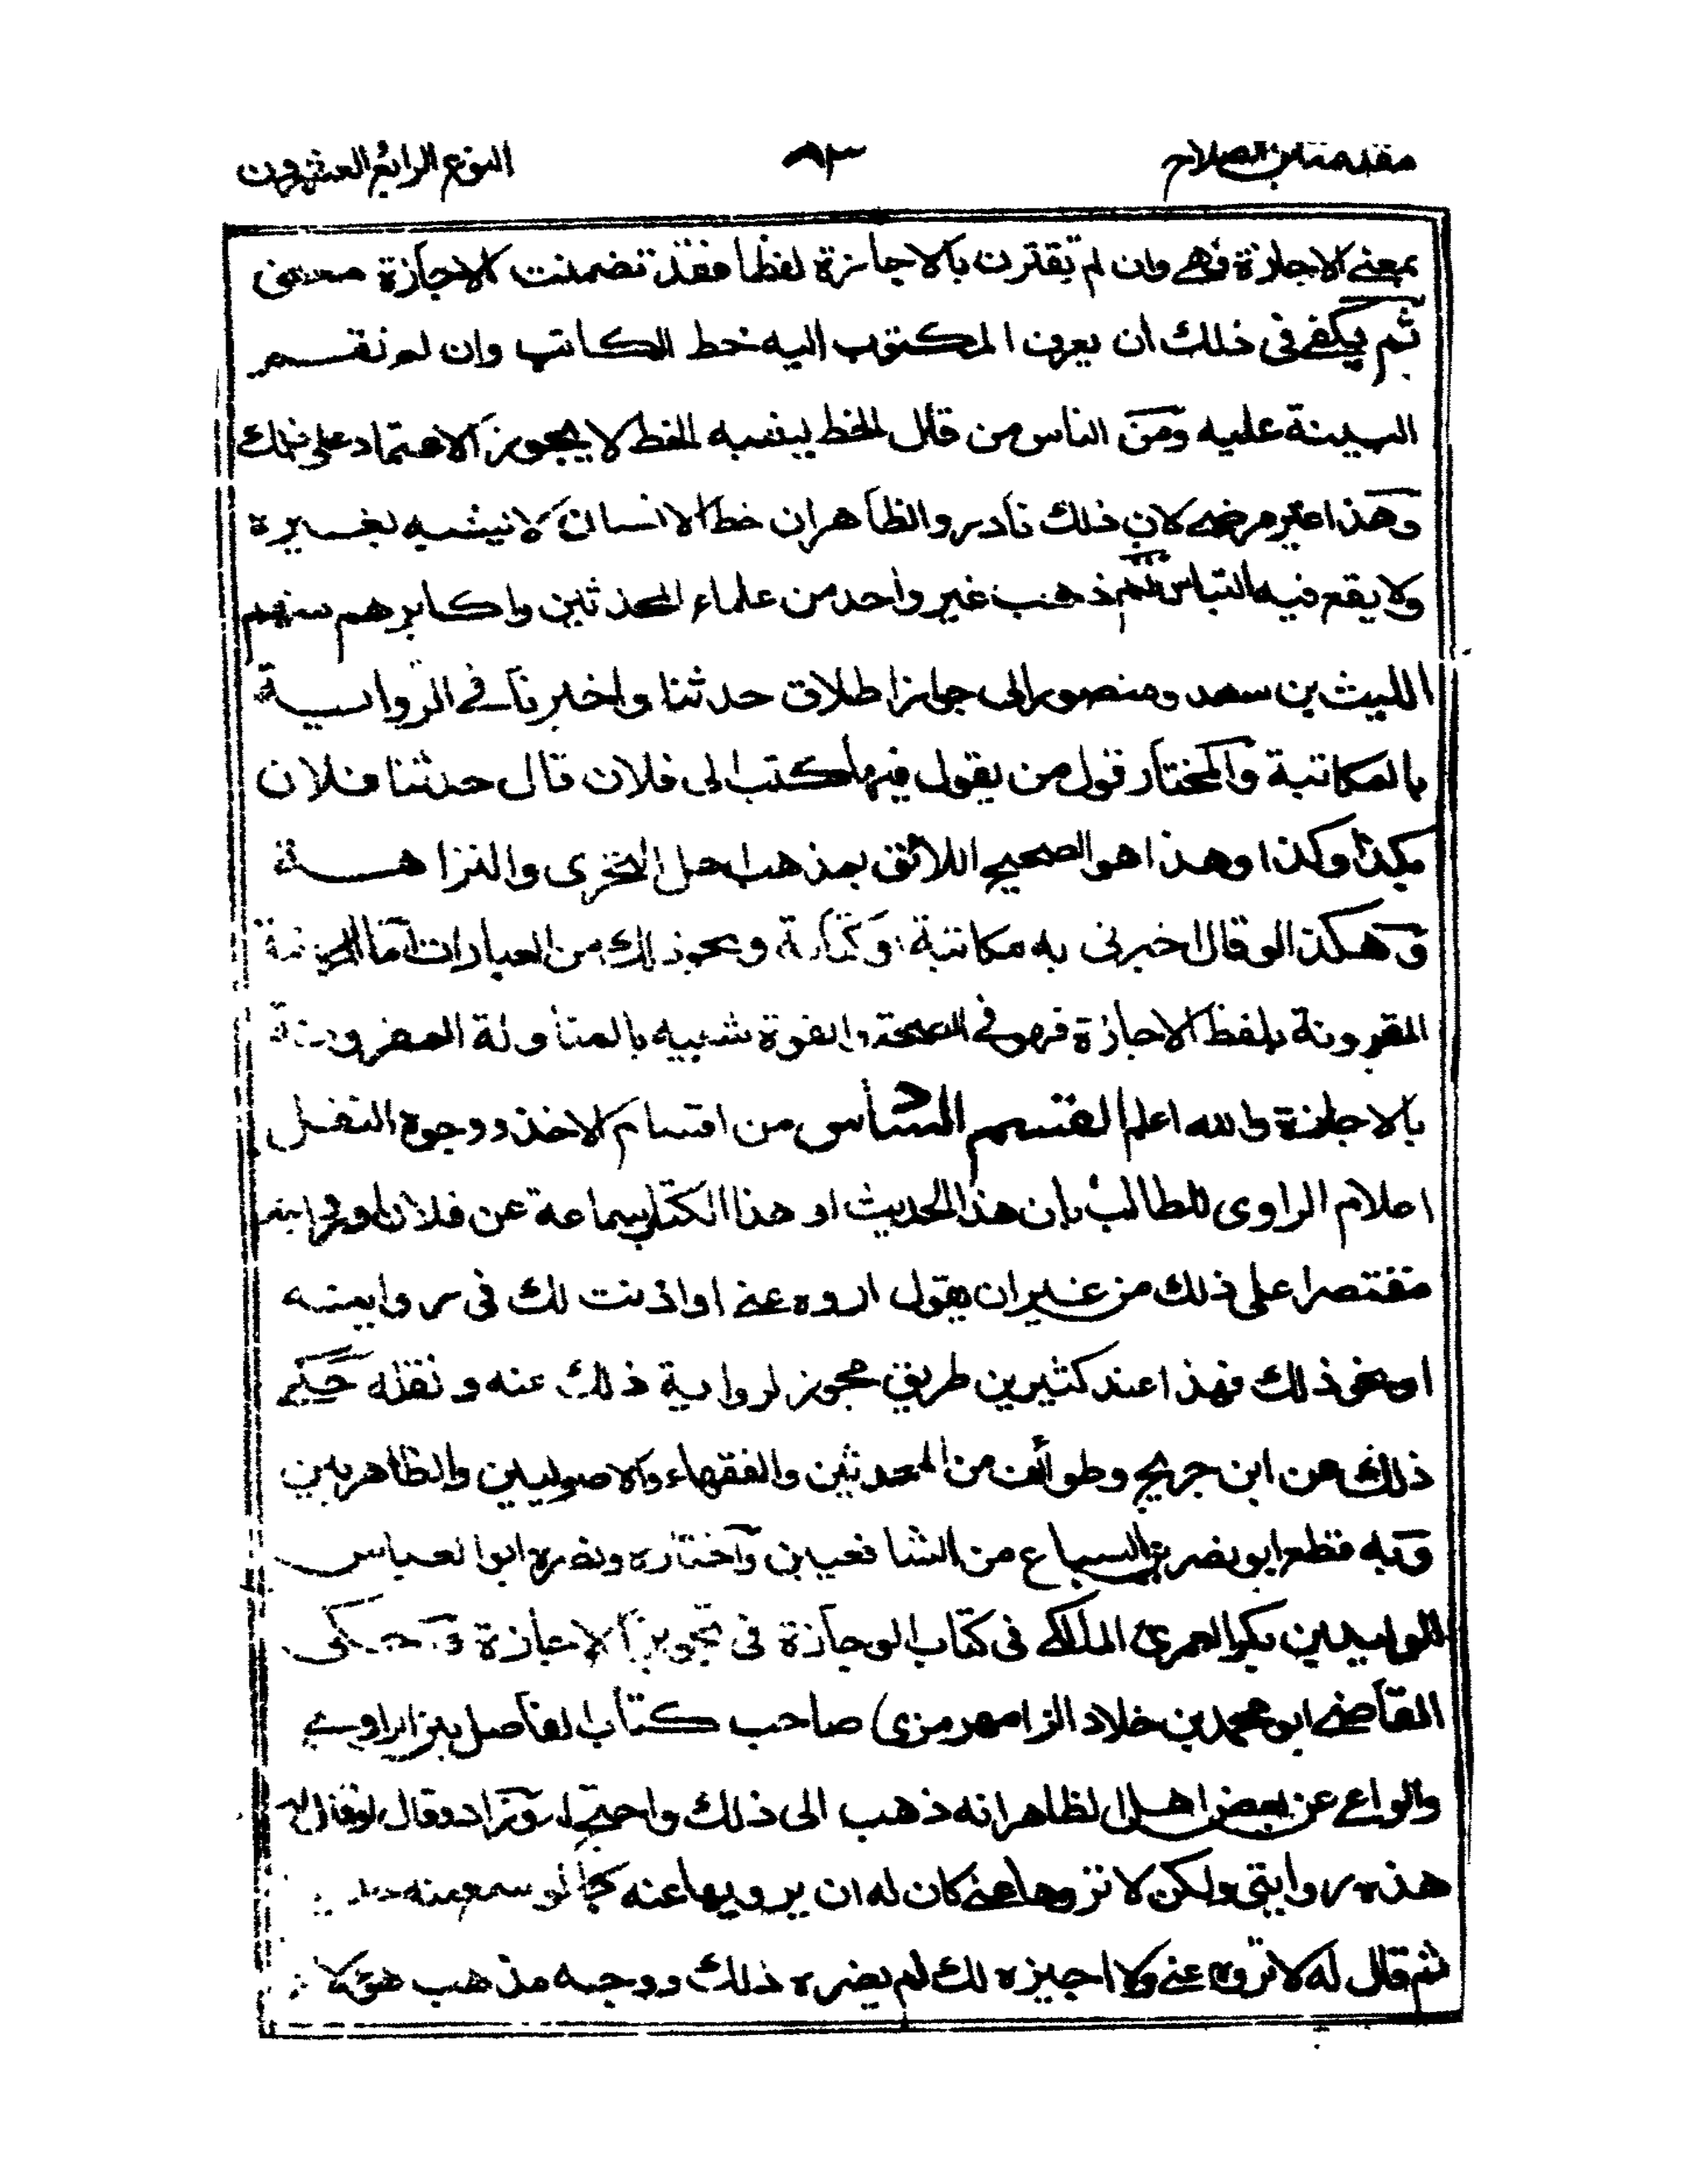 مقدمة ابن الصلاح ٨٣ النوع الرابع العشرون
بمعنى الاجازة فهى وان لم تقترن بالاجازة لفظا فقد تضمنت الاجازة معنى
ثم يكفى فى ذلك ان يعرف المكتوب اليه خط الكاتب وان لم تقم
البينة عليه ومن الناس من قال الخط يشبه الخط لا يجوز الاعتماد على ذلك
وهذا غير مرضى لان ذلك نادر والظاهر ان خط الانسان لا يشبه بغيره
ولا يقع فيه التباس ثم ذهب غير واحد من علماء المحدثين واكابرهم منهم
الليث بن سعد ومنصور الى جواز اطلاق حدثنا واخبرنا فى الرواية
بالمكاتبة والمختار قول من يقول فيها كتب الى فلان قال حدثنا فلان
بكذا وكذا وهذا هو الصحيح اللائق بمذهب اهل التحرى والنزاهة
وهكذا لو قال اخبرنى به مكاتبة او كتابة ونحو ذلك من العبارات اما المكاتبة
المقرونة بلفظ الاجازة فهو فى الصحة والقوة شبيه بالمناولة المقرونة
بالاجازة والله اعلم القسم السادس من اقسام الاخذ ووجوه النقل
اعلام الراوى للطالب بان هذا الحديث او هذا الكتاب سماعه عن فلان او روايته
مقتصرا على ذلك من غير ان يقول اروه عنى او اذنت لك فى روايته
او نحو ذلك فهذا عند كثيرين طريق مجوز لرواية ذلك عنه ونقله حكى
ذلك عن ابن جريج وطوائف من المحدثين والفقهاء والاصوليين والظاهريين
وبه قطع ابو نصر بن السباع من الشافعيين واختاره ونصره ابو العباس
الوليد بن بكر العمرى المالكى فى كتاب الوجازة فى تجويز الاجازة وحكى
القاضى ابو محمد بن خلاد الرامهرمزى صاحب كتاب الفاصل بين الراوى
والواعى عن بعض اهل الظاهر انه ذهب الى ذلك واحتج له وزاد وقال لو قال له
هذه روايتى ولكن لا تروها عنى كان له ان يرويها عنه كما لو سمع منه
ثم قال له لا تروه عنى ولا اجيزه لك لم يضره ذلك ووجه مذهب هؤلاء